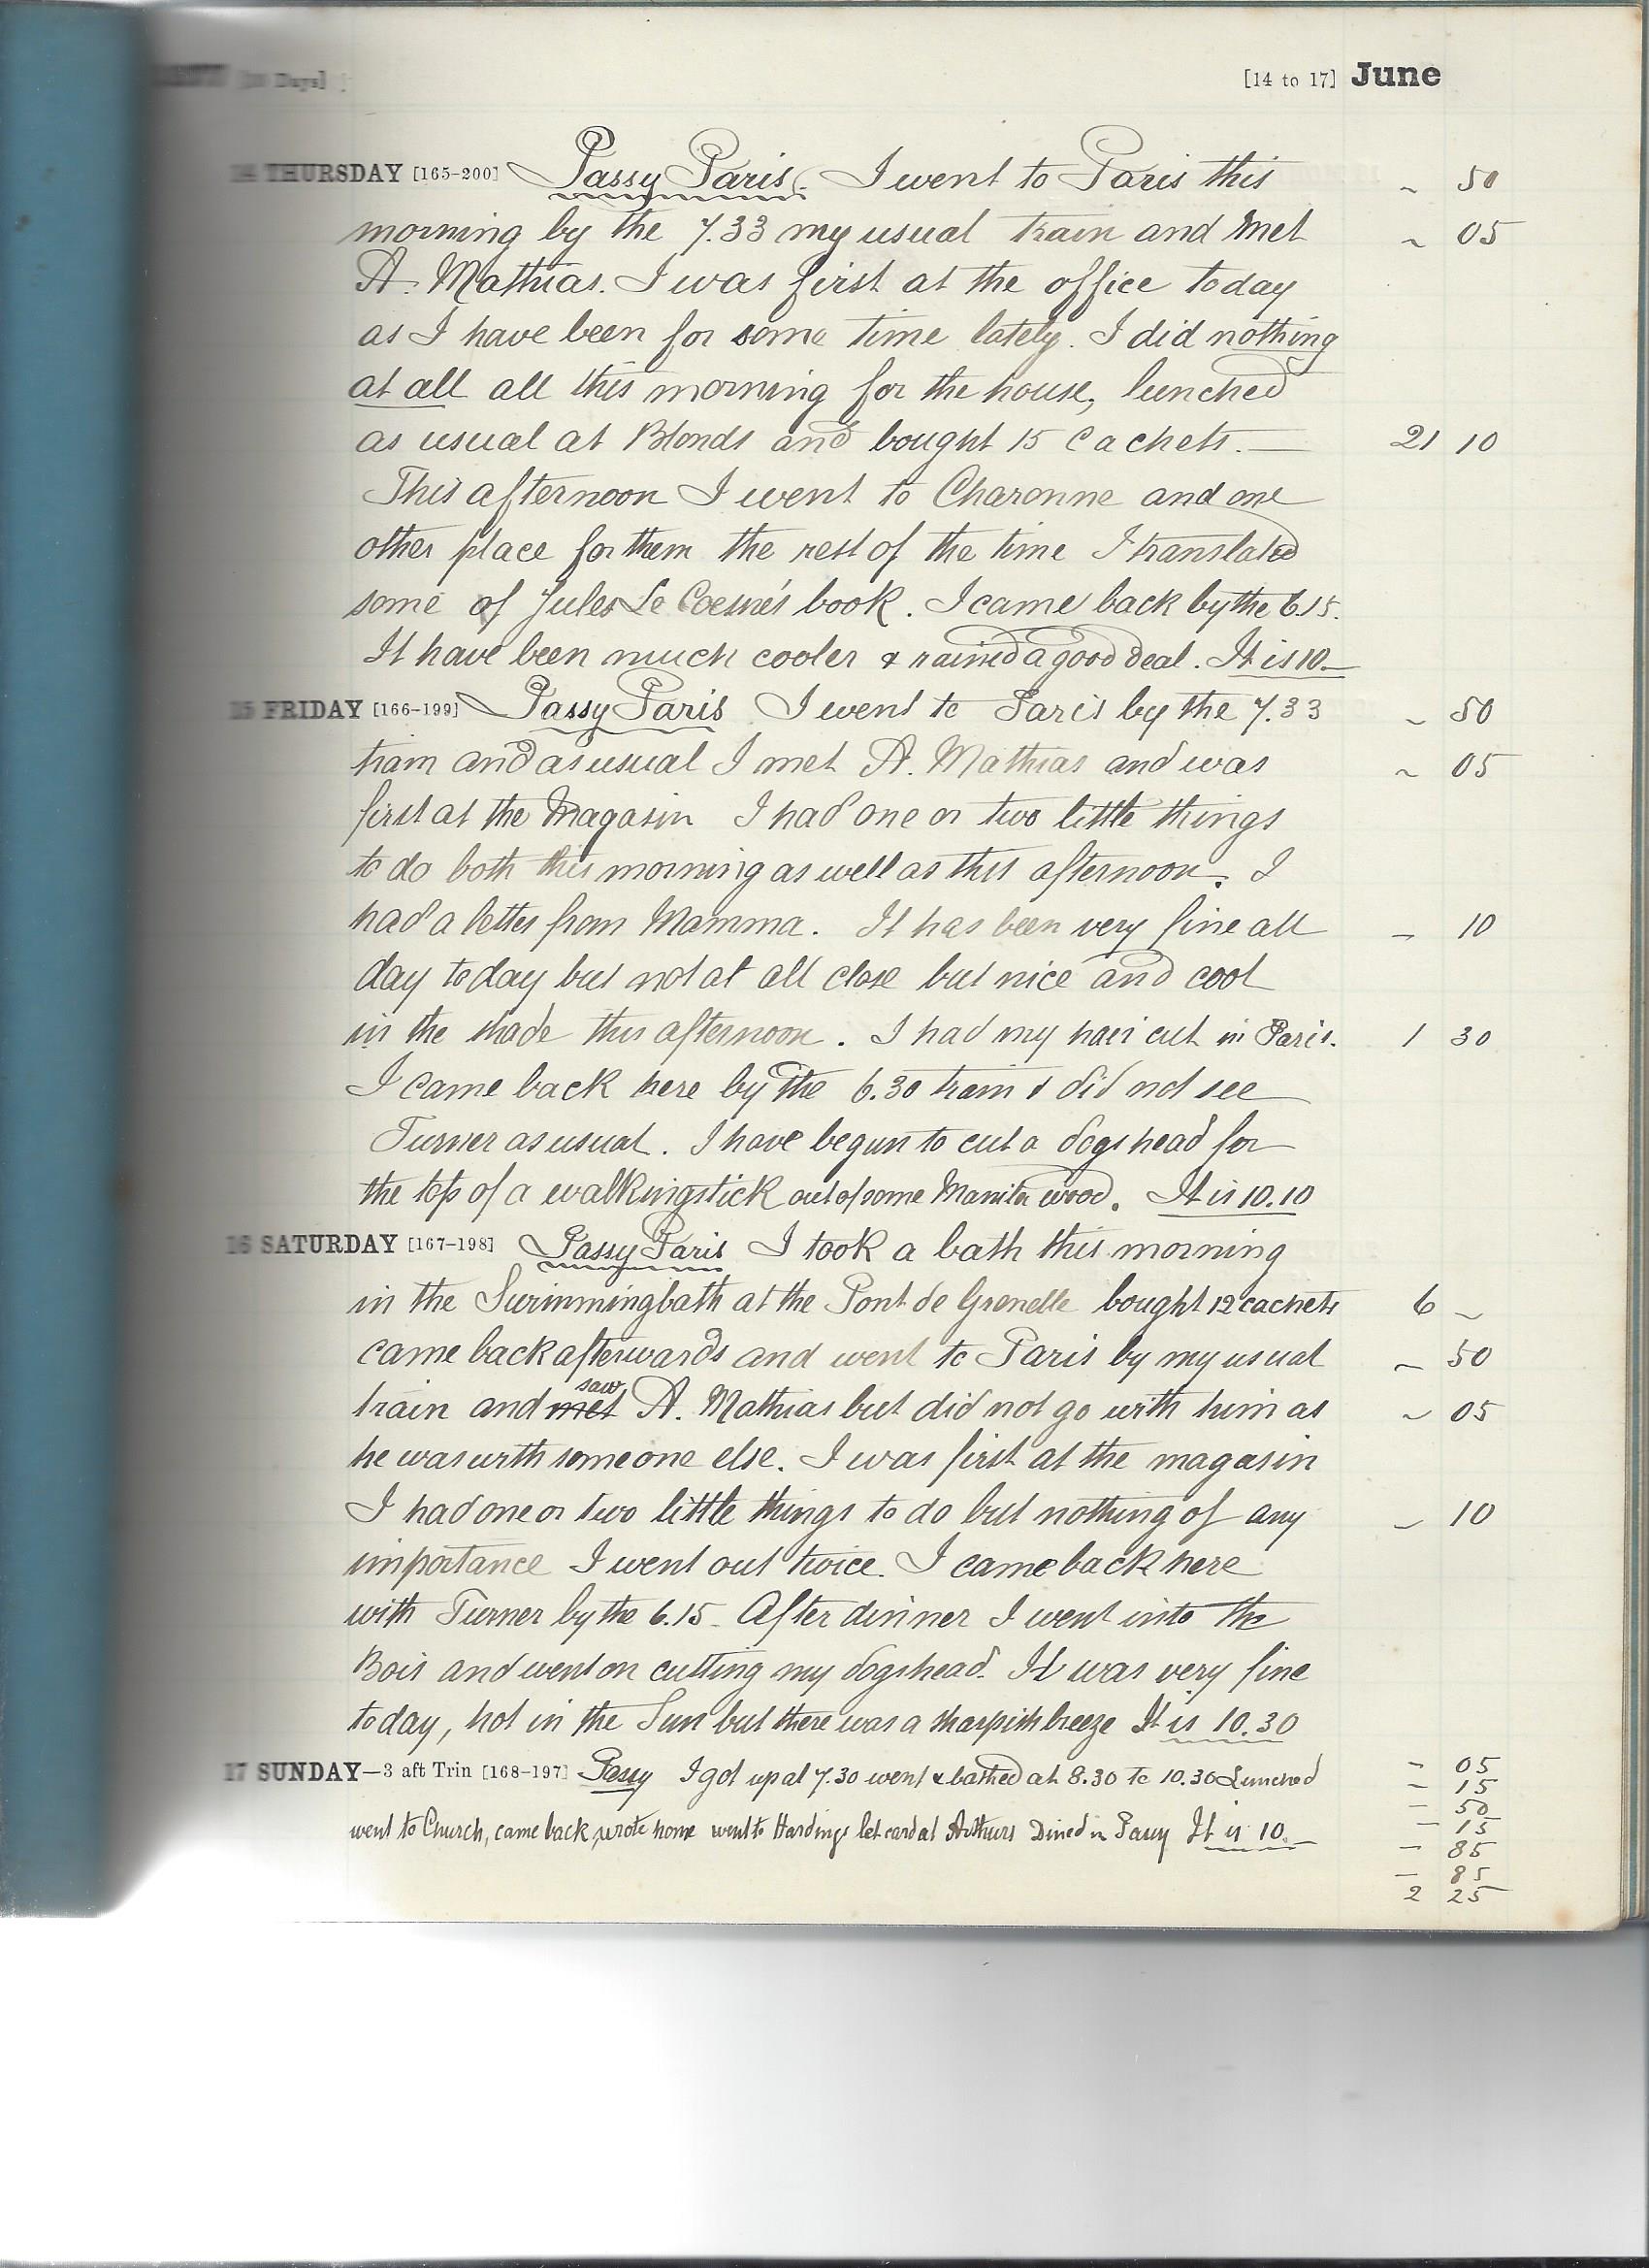 [30 Days]
[14 to 17] June
14 THURSDAY [165-200] Passy Paris. I went to Paris this ~ 50
morning by the 7.33 my usual train and met ~ 05
A. Mathias. I was first at the office today
as I have been for some time lately. I did nothing
at all all this morning for the house, lunched
as usual at Blonds and bought 15 cachets. — 21 10
This afternoon I went to Charonne and one
other place for them the rest of the time I translated
some of Jules Le Coesne's book. I came back by the 6.15.
It have been much cooler & rained a good deal. It is 10 —
15 FRIDAY [166-199] Passy Paris I went to Paris by the 7.33 ~ 50
train and as usual I met A. Mathias and was ~ 05
first at the Magasin I had one or two little things
to do both this morning as well as this afternoon. I
had a letter from Mamma. It has been very fine all — 10
day today but not at all close but nice and cool
in the shade this afternoon. I had my hair cut in Paris. 1 30
I came back here by the 6.30 train & did not see
Turner as usual. I have begun to cut a dogs head for
the top of a walkingstick out of some Manila wood. It is 10.10
16 SATURDAY [167-198] Passy Paris I took a bath this morning
in the Swimmingbath at the Pont de Grenelle bought 12 cachets 6 ~
came back afterwards and went to Paris by my usual ~ 50
train and met saw A. Mathias but did not go with him as ~ 05
he was with someone else. I was first at the magasin
I had one or two little things to do but nothing of any ~ 10
importance I went out twice. I came back here
with Turner by the 6.15. After dinner I went into the
Bois and went on cutting my dogshead. It was very fine
today, hot in the Sun but there was a sharpish breeze It is 10.30
17 SUNDAY—3 aft Trin [168-197] Passy I got up at 7.30 went & bathed at 8.30 to 10.30 Lunched — 05
— 15
— 50
went to Church, came back, wrote home went to Hardings let card at Arthurs Dined in Passy It is 10. — — 15
— 85
— 85
2 25